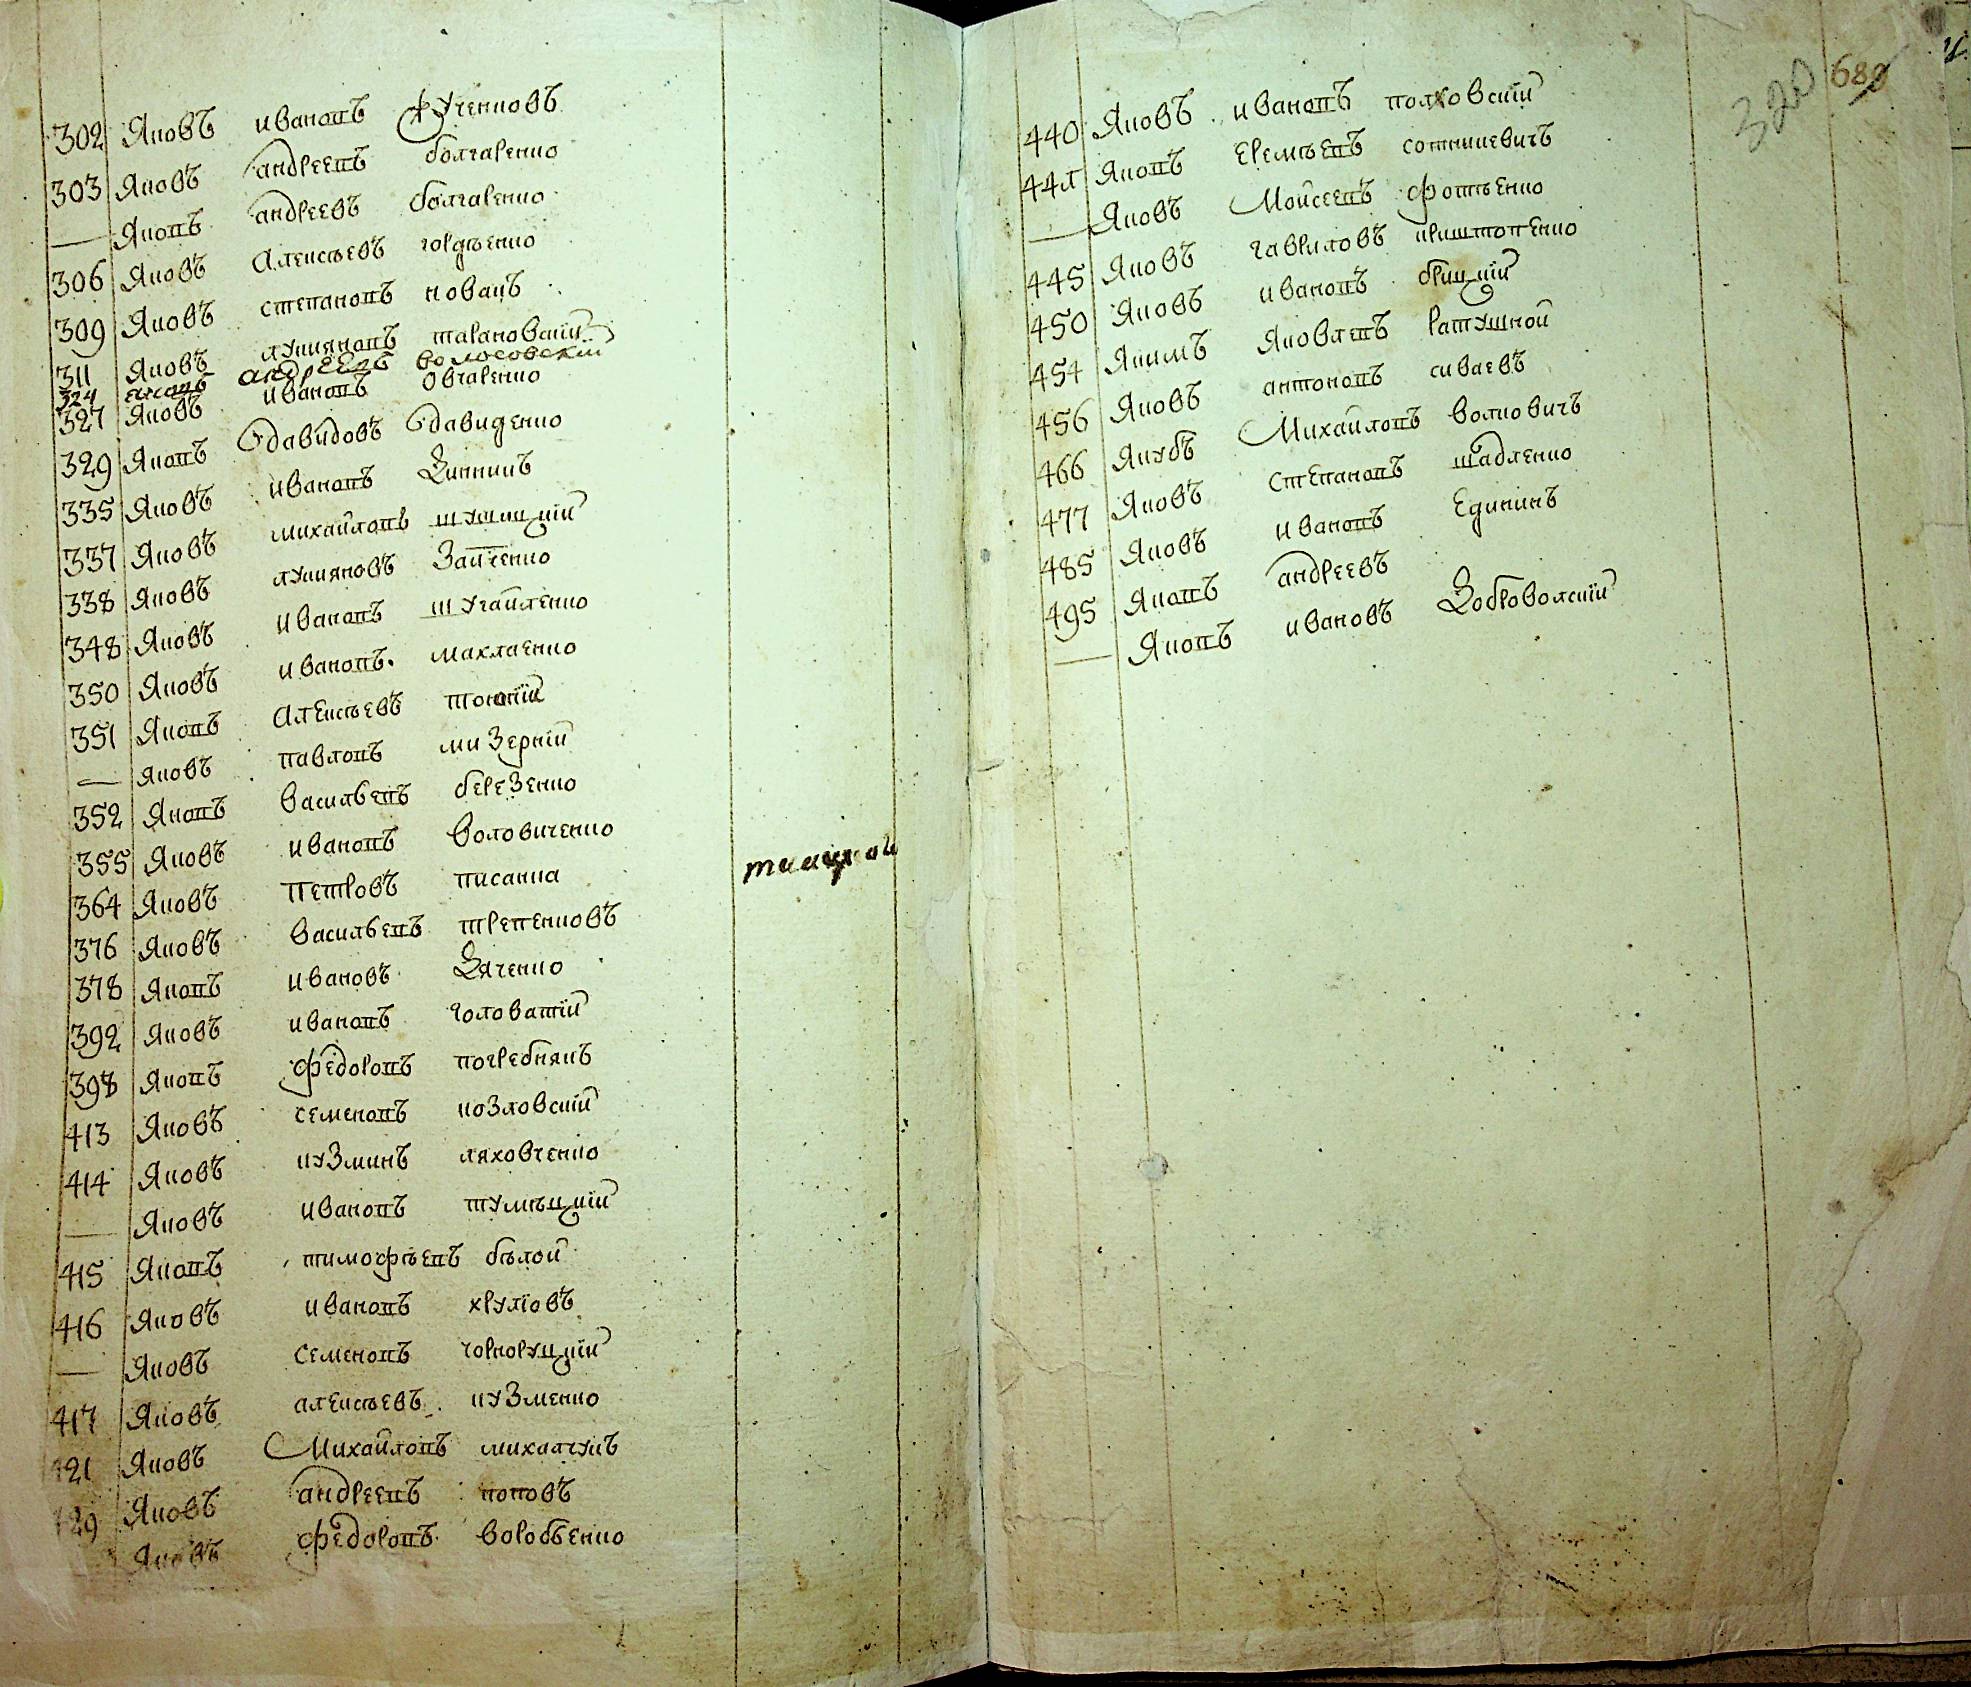 302 Яковъ Ивановъ Кученковъ
303 Яковъ андреевъ болгаренко
— Яковъ андреевъ болгаренко
306 Яковъ Алексѣевъ гордѣенко
309 Яковъ степановъ новакъ
311 Яковъ лукияновъ тарановскій
324 яковъ андреевъ волосовскій
327 Яковъ ивановъ Овчаренко
329 Яковъ давидовъ давиденко
335 Яковъ ивановъ Зинникъ
337 Яковъ михайловъ шушицкій
338 Яковъ лукияновъ Заиченко
348 Яковъ ивановъ шугайленко
350 Яковъ ивановъ махлаенко
351 Яковъ Алексѣевъ
— яковъ павловъ мизерній
352 Яковъ васильевъ березенко
355 Яковъ ивановъ воловиченко
364 Яковъ петровъ писанка
376 Яковъ васильевъ трепенковъ
378 Яковъ ивановъ Зяченко
392 Яковъ ивановъ головатій
398 Яковъ федоровъ погребнякъ
413 Яковъ семеновъ козловскій
414 Яковъ кузминъ ляховченко
— Яковъ ивановъ тумѣцкій
415 Яковъ тимофѣевъ бѣлой
416 Яковъ ивановъ хруліовъ
— Яковъ семеновъ чорноруцкій
417 Яковъ алексѣевъ кузменко
421 Яковъ Михайловъ михалчукъ
429 Яковъ андреевъ поповъ
Яковъ федоровъ воробьенко
320 689
440 Яковъ ивановъ полховскій
441 Яковъ Еремѣевъ сотникевичъ
— Яковъ Мойсеевъ фотѣенко
445 Яковъ гавриловъ криштопенко
450 Яковъ ивановъ брицкій
454 Якимъ Яковлевъ ратушной
456 Яковъ антоновъ сиваевъ
466 Якубъ Михайловъ волковичъ
477 Яковъ степановъ шадленко
485 Яковъ ивановъ Единикъ
495 Яковъ андреевъ
— Яковъ ивановъ Доброволскій